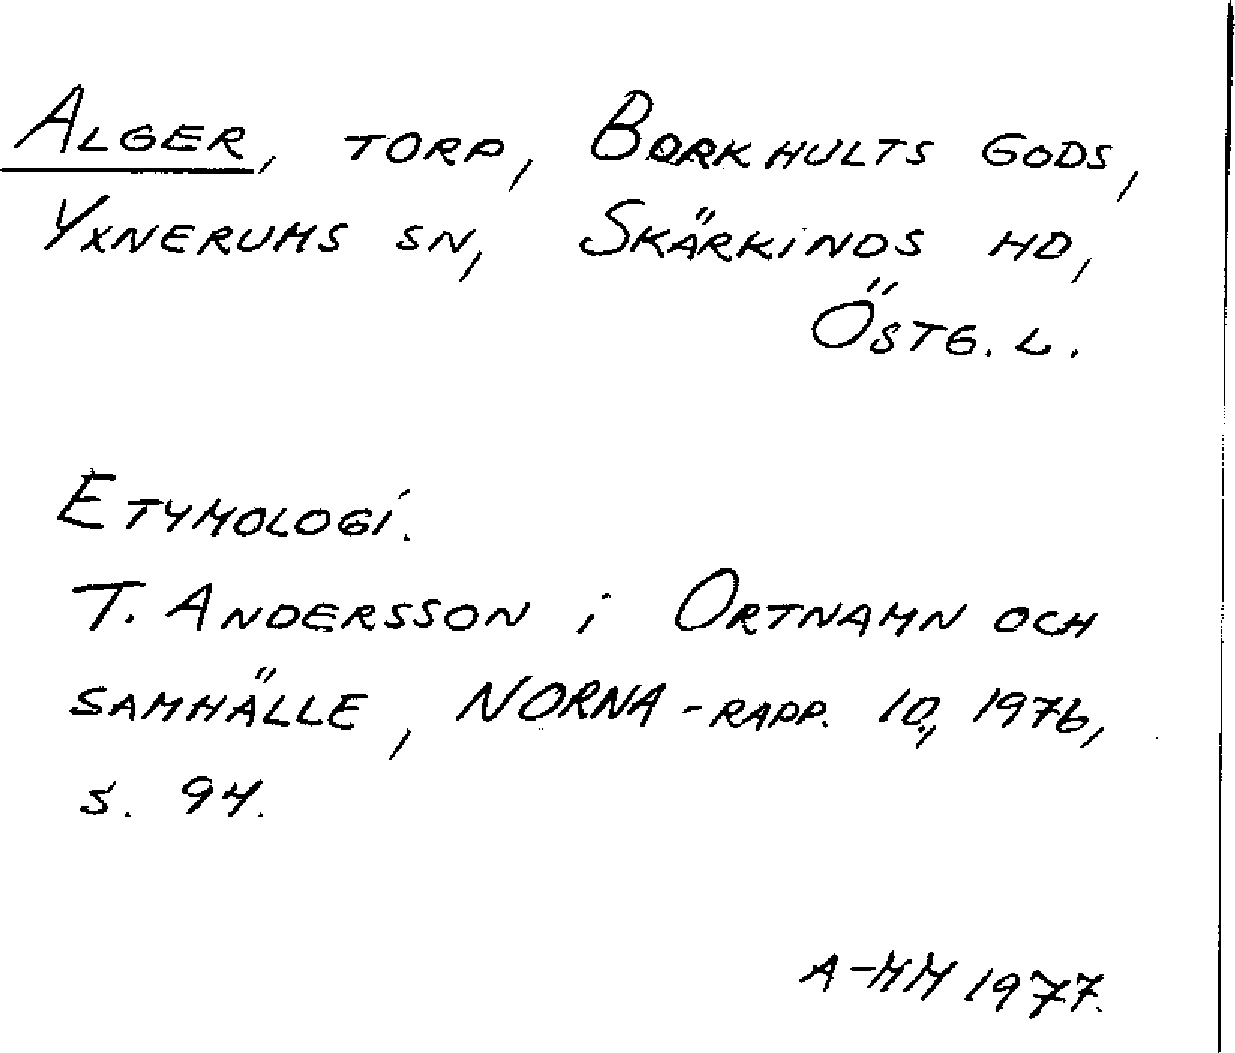 ALGER, TORP, BORKHULTS GODS,
YXNERUMS SN, SKÄRKINDS HD,
ÖSTG. L.
ETYMOLOGI.
T. ANDERSSON i ORTNAMN OCH
SAMHÄLLE, NORNA-RAPP. 10, 1976,
S. 94.
A-MM 1977.